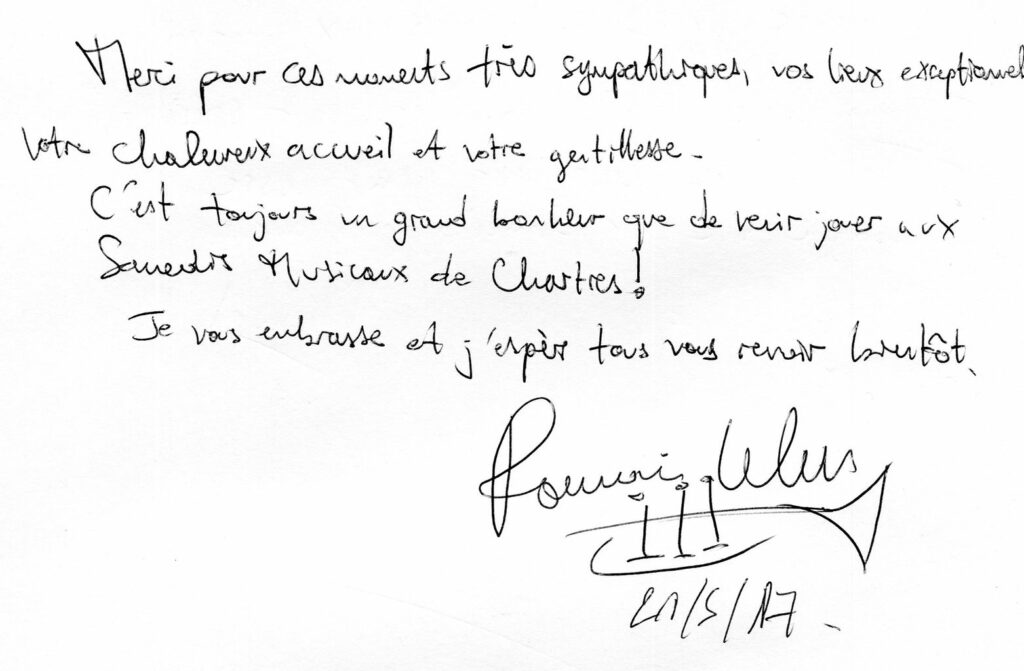 Merci pour ces moments très sympathiques, vos lieux exceptionnel
votre chaleureux accueil et votre gentillesse.
C'est toujours un grand bonheur que de venir jouer aux
Samedis Musicaux de Chartres !
Je vous embrasse et j'espèr tous vous revoir bientôt.
Romain Leleu
21/5/17.